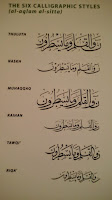 THE SIX CALLIGRAPHIC STYLES
(al-aqlam al-sitta)
THULUTH
ن والقلم وما يسطرون
NASKH
ن والقلم وما يسطرون
MUHAQQAQ
ن والقلم وما يسطرون
RAIHAN
ن والقلم وما يسطرون
TAWQI'
ن والقلم وما يسطرون
RIQA'
ن والقلم وما يسطرون